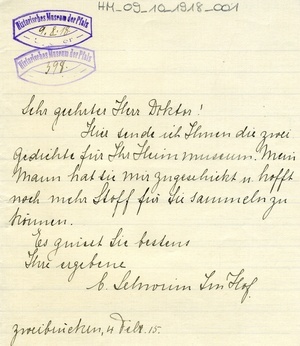 HM_09_10_1918_001
Historisches Museum der Pfalz
9. 2. 15
Historisches Museum der Pfalz
399.
Sehr geehrter Herr Doktor!
Hier sende ich Ihnen die zwei
Gedichte für Ihr Heimmuseum. Mein
Mann hat sie mir zugeschickt u. hofft
noch mehr Stoff für Sie sammeln zu
können.
Es grüsst Sie bestens
Ihre ergebene
Schwinn Im Hof.
Zweibrücken, 4 Febr. 15.